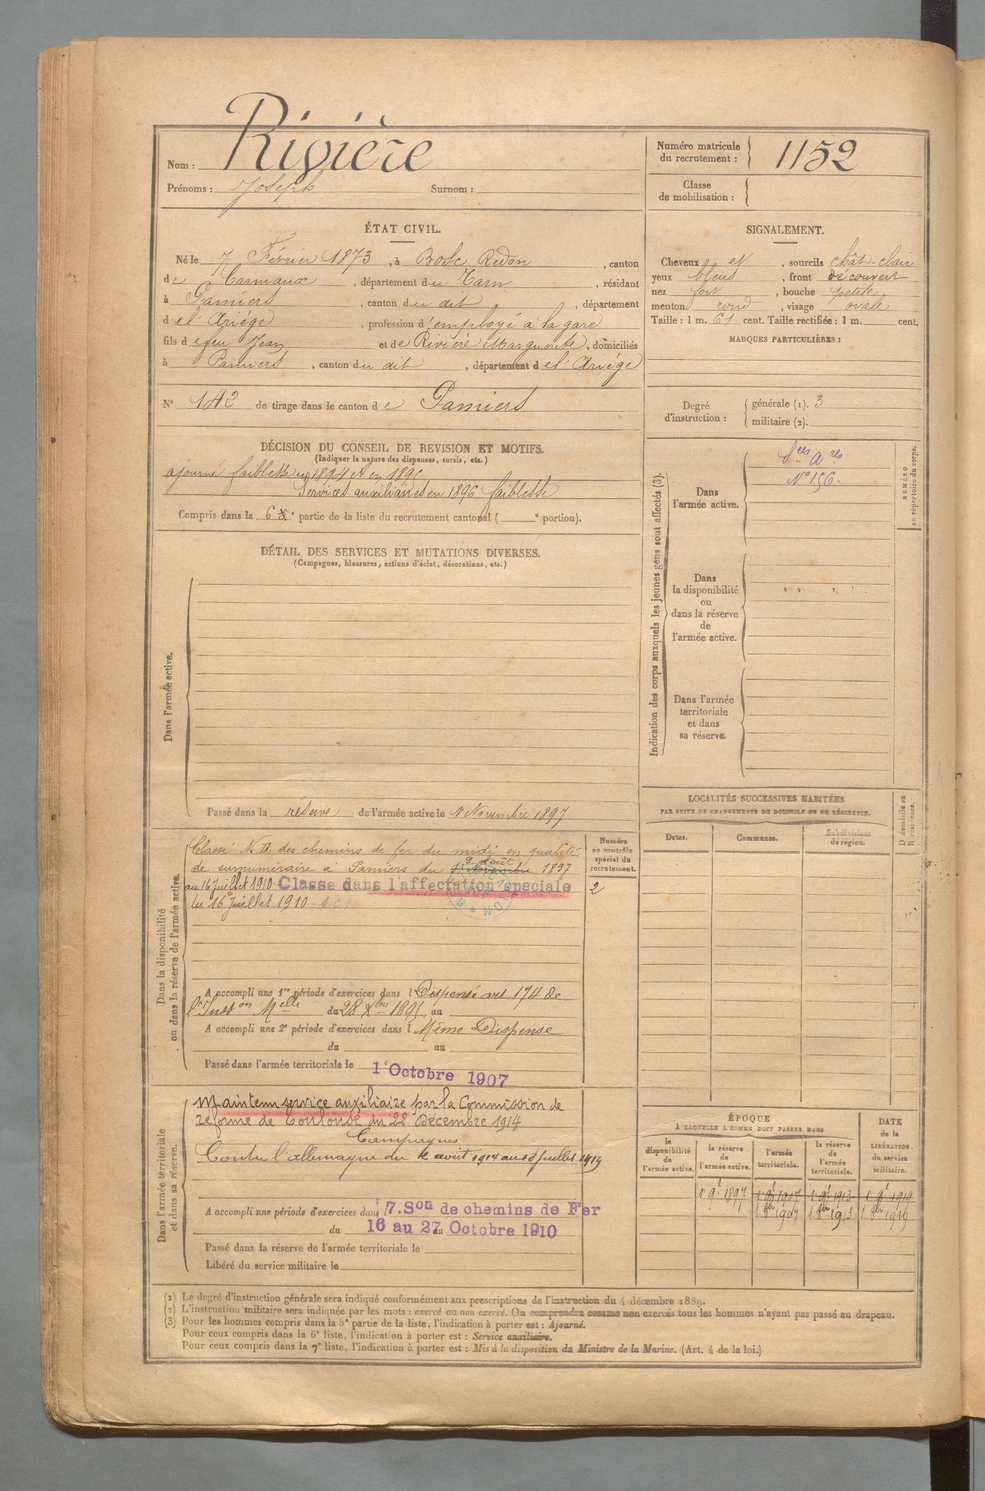 Nom : Rivière
Prénoms : Joseph Surnom :
Numéro matricule du recrutement : 1152
Classe de mobilisation :
ÉTAT CIVIL.
Né le 7 Février 1873, à Bosc Redon, canton
de Carmaux, département du Tarn, résidant
à Pamiers, canton du dit, département
de l'Ariége, profession d'employé à la gare
fils de feu Jean et de Rivière Marguerite, domiciliés
à Pamiers, canton du dit, département de l'Ariége
N° 142 de tirage dans le canton de Pamiers
SIGNALEMENT.
Cheveux et, sourcils chât-clair
yeux bleus, front découvert
nez fort, bouche petite
menton rond, visage ovale
Taille : 1 m. 61 cent. Taille rectifiée : 1 m. cent.
MARQUES PARTICULIÈRES :
Degré d'instruction : générale (1). 3
militaire (2).
DÉCISION DU CONSEIL DE REVISION ET MOTIFS.
(Indiquer la nature des dispenses, sursis, etc.)
ajourné faiblesse en 1894 et en 1895
Services auxiliaires en 1896 faiblesse
Compris dans la 6e partie de la liste du recrutement cantonal ( e portion).
DÉTAIL DES SERVICES ET MUTATIONS DIVERSES.
(Campagnes, blessures, actions d'éclat, décorations, etc.)
Dans l'armée active.
Passé dans la réserve de l'armée active le 1er Novembre 1897
Indication des corps auxquels les jeunes gens sont affectés (3).
NUMÉRO au répertoire du corps.
Dans l'armée active.
Sces Ares
N° 156.
Dans la disponibilité ou dans la réserve de l'armée active.
Dans l'armée territoriale et dans sa réserve.
Dans la disponibilité ou dans la réserve de l'armée active.
Numéro au contrôle spécial du recrutement.
2
Classé N.D. des chemins de fer du midi en qualité
de surnuméraire à Pamiers du 9 Août 1897
au 16 Juillet 1910 Classe dans l'affectation speciale
du 16 Juillet 1910
A accompli une 1re période d'exercices dans l Dispensé art 174 de
l'Inston Melle du 28 Xbre 1895 au
A accompli une 2e période d'exercices dans l Même Dispense
du au
Passé dans l'armée territoriale le 1 Octobre 1907
LOCALITÉS SUCCESSIVES HABITÉES
PAR SUITE DE CHANGEMENTS DE DOMICILE OU DE RÉSIDENCE.
Dates. Communes. Subdivisions de région. D domicile ou R résidence.
Dans l'armée territoriale et dans sa réserve.
Maintenu service auxiliaire par la Commission de
réforme de Toulouse du 22 Décembre 1914
Campagnes
Contre l'allemagne du 2 août 1914 au 8 juillet 1919
A accompli une période d'exercices dans 7.Son de chemins de Fer
du 16 au 27 Octobre 1910
Passé dans la réserve de l'armée territoriale le
Libéré du service militaire le
ÉPOQUE
À LAQUELLE L'HOMME DOIT PASSER DANS
la disponibilité de l'armée active. la réserve de l'armée active. l'armée territoriale. la réserve de l'armée territoriale. DATE de la LIBÉRATION du service militaire.
1 9e 1897 1 9e 1907 1 9e 1913 1 9e 1919
1 8bre 1907 1 8bre 1913 1 8bre 1919
(1) Le degré d'instruction générale sera indiqué conformément aux prescriptions de l'instruction du 4 décembre 1889.
(2) L'instruction militaire sera indiquée par les mots : exercé ou non exercé. On comprendra comme non exercés tous les hommes n'ayant pas passé au drapeau.
(3) Pour les hommes compris dans la 5e partie de la liste, l'indication à porter est : Ajourné.
Pour ceux compris dans la 6e liste, l'indication à porter est : Service auxiliaire.
Pour ceux compris dans la 7e liste, l'indication à porter est : Mis à la disposition du Ministre de la Marine. (Art. 4 de la loi.)